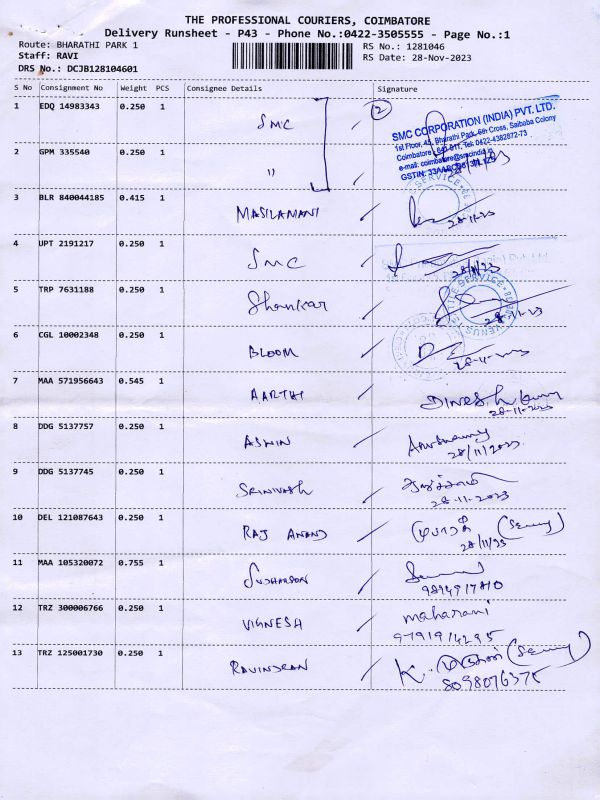 THE PROFESSIONAL COURIERS, COIMBATORE
Delivery Runsheet - P43 - Phone No.:0422-3505555 - Page No.:1
Route: BHARATHI PARK 1
RS No.: 1281046
Staff: RAVI
RS Date: 28-Nov-2023
DRS No.: DCJB128104601
S No Consignment No Weight PCS Consignee Details Signature
1 EDQ 14983343 0.250 1 SMC 2
SMC CORPORATION (INDIA) PVT. LTD.
1st Floor, 45, Bharathi Park, 6th Cross, Saibaba Colony
Coimbatore - 641 011, Tel: 0422-4382872-73
e-mail: coimbatore@smcindia.in
2 GPM 335540 0.250 1 "
3 BLR 840044185 0.415 1 MASILAMANI
28-11-23
4 UPT 2191217 0.250 1 SMC
28/11/23
5 TRP 7631188 0.250 1 Shankar
28-11-23
6 CGL 10002348 0.250 1 BLOOM
28-11-2023
7 MAA 571956643 0.545 1 AARTHI DINESH
28-11-2023
8 DDG 5137757 0.250 1 ASHIN
28/11/2023
9 DDG 5137745 0.250 1 SRINIVASH
28-11-2023
10 DEL 121087643 0.250 1 RAJ ANAND
28/11/23
11 MAA 105320072 0.755 1 SUDHARSON
9894917810
12 TRZ 300006766 0.250 1 VIGNESH maharani
9791914295
13 TRZ 125001730 0.250 1 RAVINDRAN K.